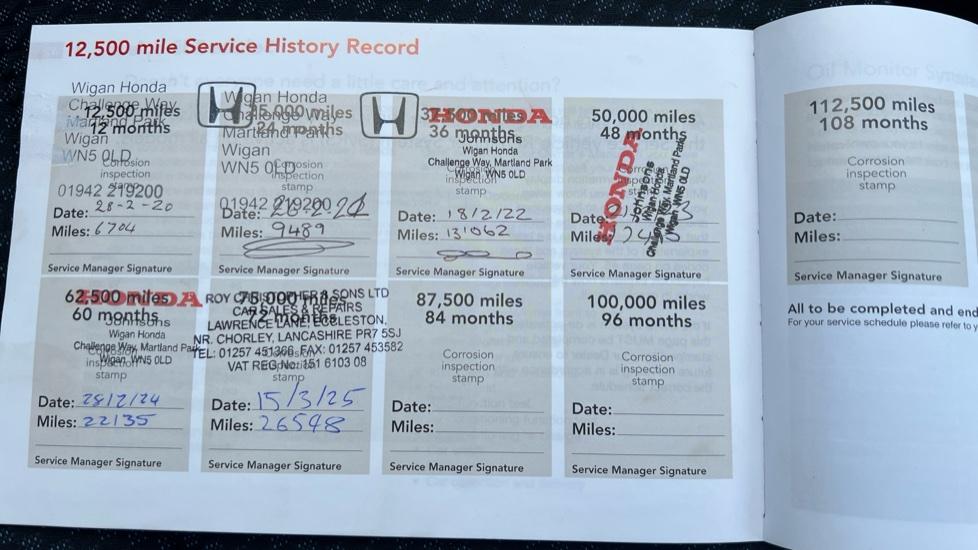 12,500 mile Service History Record
Wigan Honda
Challenge Way
Martland Park
Wigan
WN5 0LD
01942 219200
12,500 miles
12 months
Corrosion
inspection
stamp
Date: 28-2-20
Miles: 6704
Service Manager Signature
Wigan Honda
Challenge Way
Martland Park
Wigan
WN5 0LD
01942 219200
25,000 miles
24 months
Corrosion
inspection
stamp
Date:
Miles: 9489
Service Manager Signature
HONDA
Johnsons
Wigan Honda
Challenge Way, Martland Park
Wigan, WN5 0LD
37,500 miles
36 months
Corrosion
inspection
stamp
Date: 18/2/22
Miles: 131062
Service Manager Signature
50,000 miles
48 months
HONDA
Johnsons
Wigan Honda
Challenge Way, Martland Park
Wigan, WN5 0LD
Corrosion
inspection
stamp
Date:
Miles:
Service Manager Signature
112,500 miles
108 months
Corrosion
inspection
stamp
Date:
Miles:
Service Manager Signature
62,500 miles
60 months
HONDA
Johnsons
Wigan Honda
Challenge Way, Martland Park
Wigan, WN5 0LD
Corrosion
inspection
stamp
Date: 28/2/24
Miles: 22135
Service Manager Signature
75,000 miles
72 months
ROY CHRISTOPHER & SONS LTD
CAR SALES & REPAIRS
LAWRENCE LANE, ECCLESTON,
NR. CHORLEY, LANCASHIRE PR7 5SJ
TEL: 01257 451366 FAX: 01257 453582
VAT REG No: 151 6103 08
Corrosion
inspection
stamp
Date: 15/3/25
Miles: 26598
Service Manager Signature
87,500 miles
84 months
Corrosion
inspection
stamp
Date:
Miles:
Service Manager Signature
100,000 miles
96 months
Corrosion
inspection
stamp
Date:
Miles:
Service Manager Signature
All to be completed and
For your service schedule please refer to